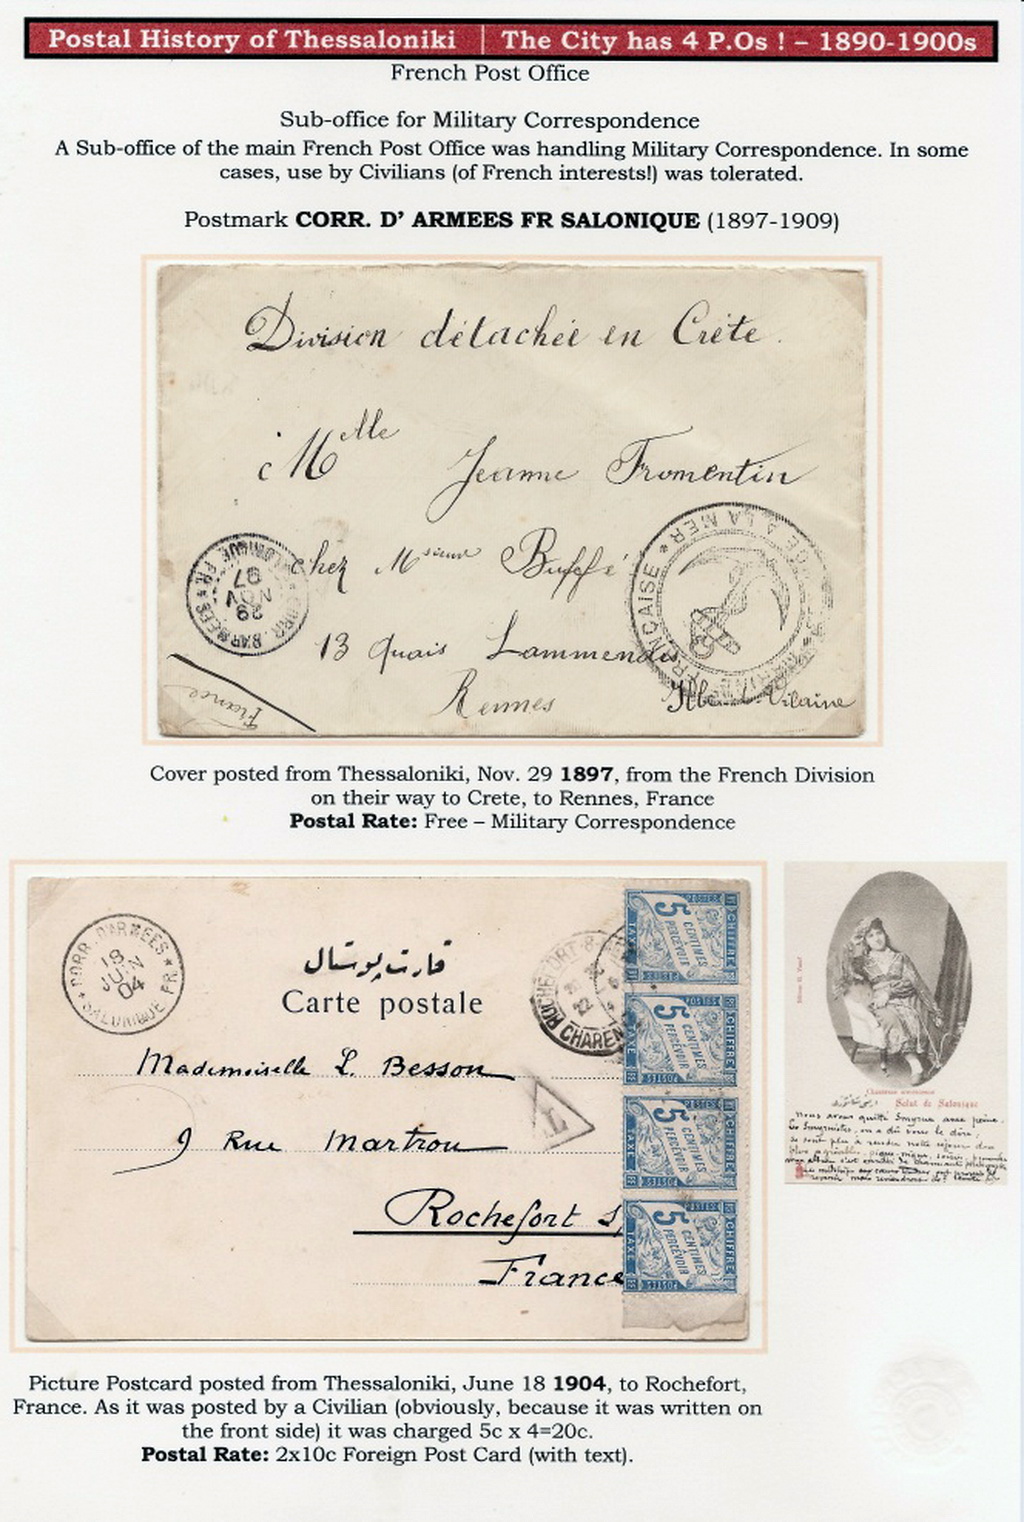 Postal History of Thessaloniki | The City has 4 P.Os ! – 1890-1900s
French Post Office
Sub-office for Military Correspondence
A Sub-office of the main French Post Office was handling Military Correspondence. In some
cases, use by Civilians (of French interests!) was tolerated.
Postmark CORR. D' ARMEES FR SALONIQUE (1897-1909)
Division détachée en Crète.
Melle Jeanne Fromentin
chez Msieur Buffé
13 Quais Lammenais
Rennes
Ille Vilaine
France
CORR. D'ARMEES
SALONIQUE FR.
29
NOV
97
FRANÇAISE * A LA MER *
Cover posted from Thessaloniki, Nov. 29 1897, from the French Division
on their way to Crete, to Rennes, France
Postal Rate: Free – Military Correspondence
CORR. D'ARMÉES
18
JUIN
04
SALONIQUE FR.
قارت پوستال
Carte postale
Mademoiselle L. Besson
9 Rue Martrou
Rochefort s/
France
T
ROCHEFORT-S-
22
CHAREN
POSTES
CHIFFRE
5
CENTIMES
PERCEVOIR
TAXE
POSTES
CHIFFRE
5
CENTIMES
PERCEVOIR
TAXE
POSTES
POSTES
CHIFFRE
5
CENTIMES
PERCEVOIR
TAXE
POSTES
POSTES
CHIFFRE
5
CENTIMES
PERCEVOIR
TAXE
POSTES
Salut de Salonique
Nous avons quitté Smyrne avec peine.
Les Smyrniotes, on a dû vous le dire,
se sont plu à rendre notre séjour des
plus agréables.
Picture Postcard posted from Thessaloniki, June 18 1904, to Rochefort,
France. As it was posted by a Civilian (obviously, because it was written on
the front side) it was charged 5c x 4=20c.
Postal Rate: 2x10c Foreign Post Card (with text).